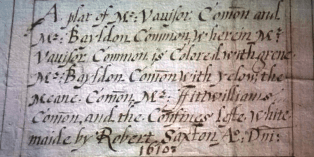 A plat of Mr. Vavisor Comōn and
Mr: Bayldon Common, wherein Mr:
Vavisor Common is Colored with grene
Mr: Bayldon Comōn with yelow, the
Meane Comōn, Mr. ffitzwilliams
Comon, and the Confines lefte white
maide by Robert Saxton Æo: Dm: